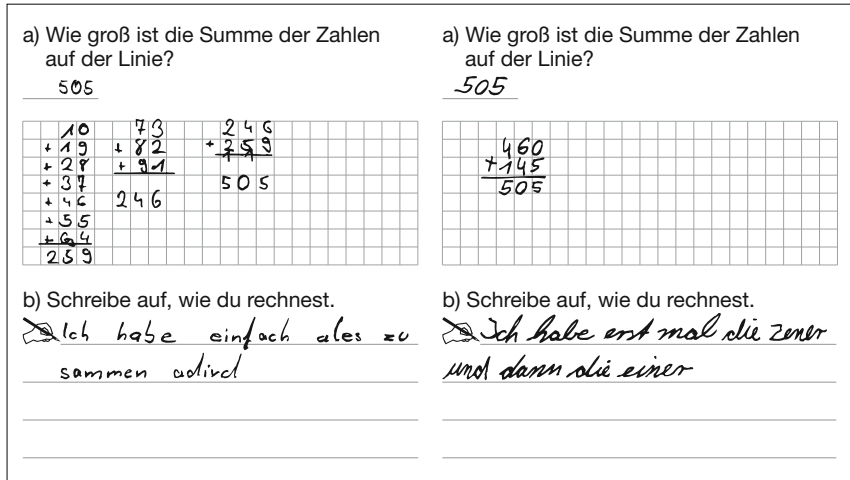 a) Wie groß ist die Summe der Zahlen
auf der Linie?
505
10
+ 19
+ 28
+ 37
+ 46
+ 55
+ 64
259
73
+ 82
+ 91
246
246
+ 259
11
505
b) Schreibe auf, wie du rechnest.
Ich habe einfach ales zu
sammen adird
a) Wie groß ist die Summe der Zahlen
auf der Linie?
505
460
+145
505
b) Schreibe auf, wie du rechnest.
Ich habe erst mal die zener
und dann die einer